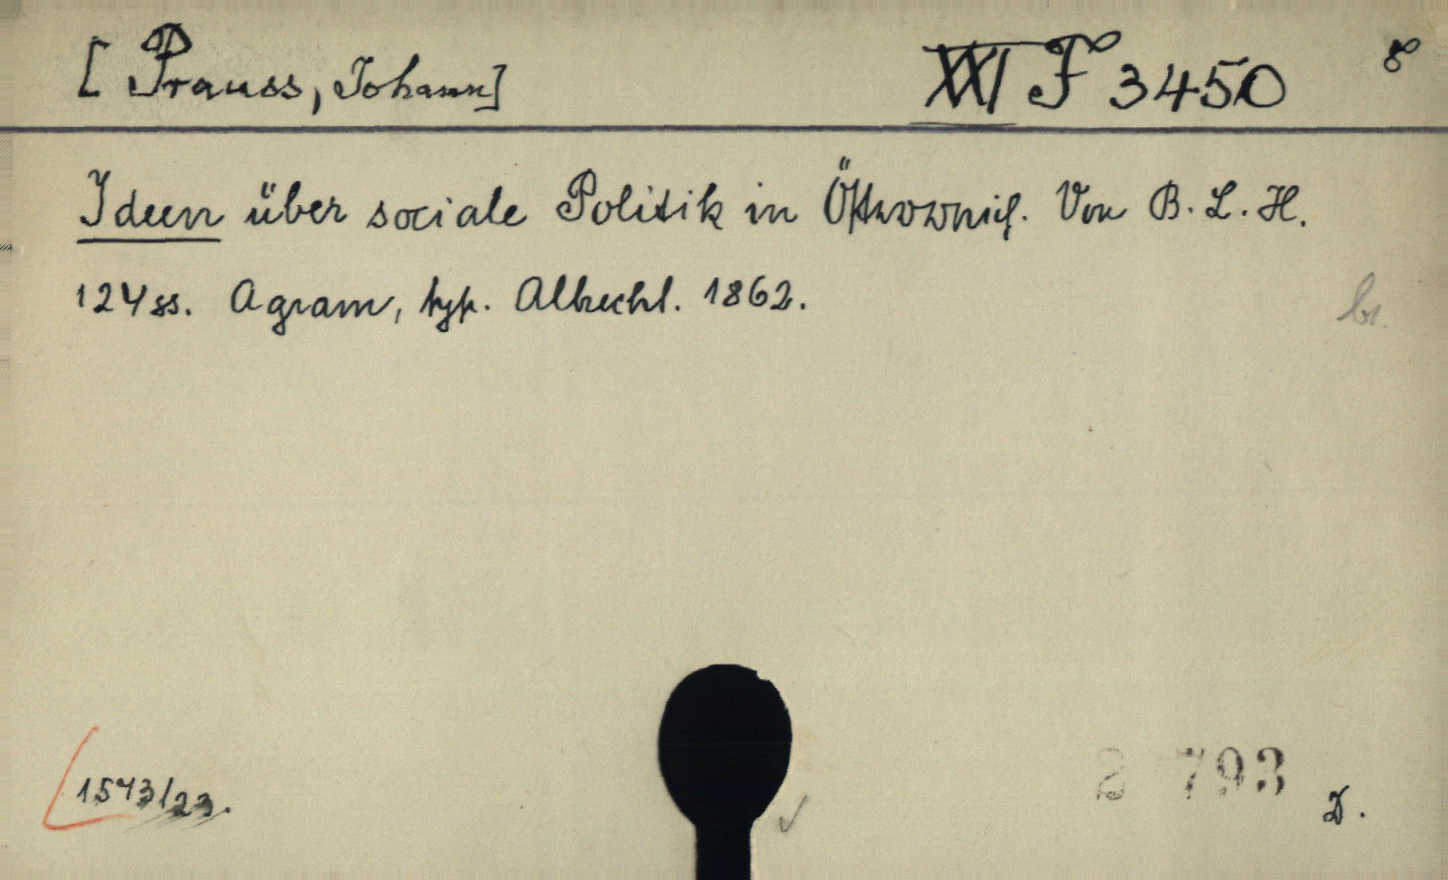 [Prauss, Johann] XXI F 3450 8
Ideen über sociale Politik in Österreich. Von B. L. H.
124 ss. Agram, typ. Albrecht. 1862.
br.
1543/23.
2 793
D.